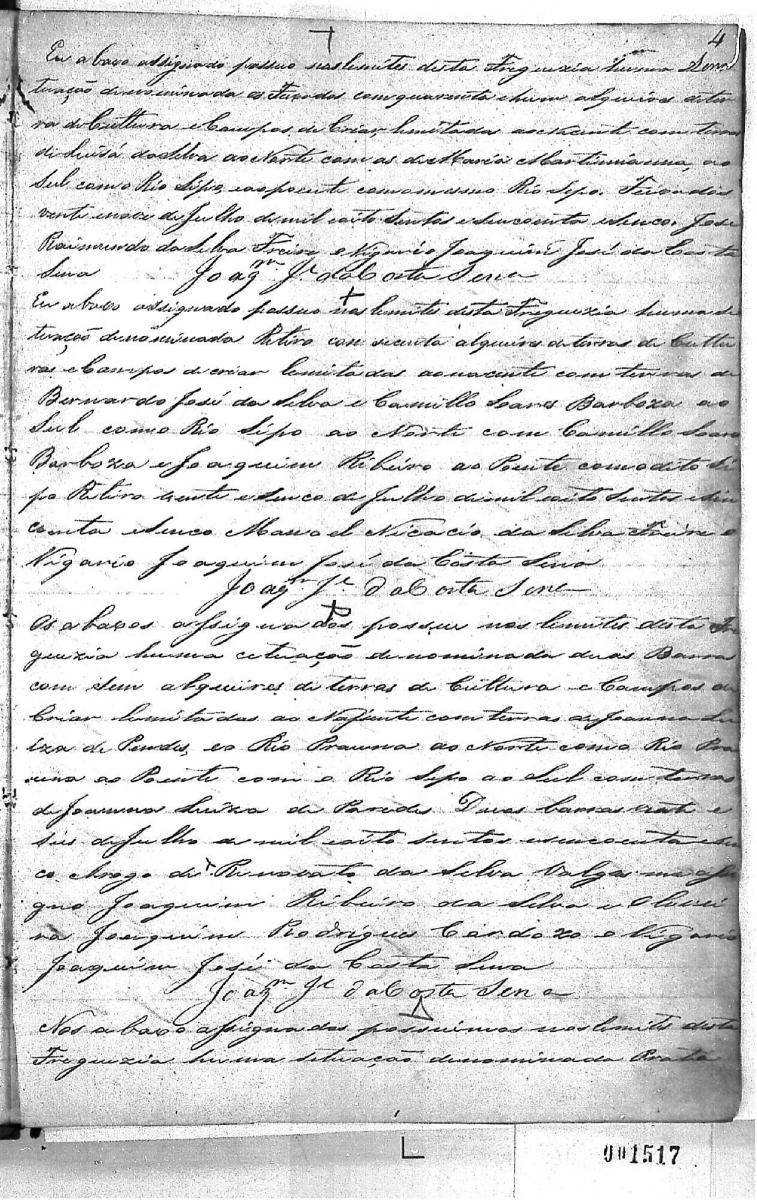 4
Eu abaxo assignado possuo nas lemites desta Freguezia huma
tuação denominada as Fundas com quarenta e hum alqueires de ter
ra de Cultura e Campos de Criar lemitadas ao Nacente com terras
di Luisa da Silva ao Norte com as de Maria Martimianna, ao
Sul com o Rio Sipo, e ao poente com o mesmo Rio Sipo.
vente e nove de Julho de mil oito sentos e sencoenta e senco. José
Raimundo da Silva Freire o Vigario Joaquim José da Costa
Sena Joaqm Je. da Costa Sena
Eu abaxo assignado possuo nas lemites desta Freguezia huma se
tuação denominada Retiro com secenta alqueires de terras de Cultu
ras e Campos de criar lemitadas ao nacente com terras de
Bernardo José da Silva e Camillo Soares Barboza ao
Sul com o Rio Sipo ao Norte com Camillo Soares
Barboza e Joaquim Ribeiro ao Poente com o dito Si
po Retiro vente e senco de Julho de mil oito sentos e sin
coenta e senco Manoel Nicacio da Silva Freire o
Vigario Joaquim José da Costa Sena
Joaqm Je. da Costa Sena
Os abaxos assignados possue nos lemites desta Fre
guezia huma cetuação denominada duas Barra
com sem alqueires de terras de Cultura e Campos de
Criar lemitadas ao Nascente com terras de Joanna Lu
iza de Peredes, e o Rio Prauna ao Norte com o Rio Pra
una ao Poente com o Rio Sipo ao Sul com terras
de Joanna Luiza de Paredes Duas barras vente e
seis de Julho de mil oito sentos e sencoenta e sen
co Arogo de Renovato da Silva Valga me assi
gno Joaquim Ribeiro da Silva e Olivei
ra Joaquim Rodrigues Cardozo o Vigario
Joaquim José da Costa Sena
Joaqm Je da Costa Sena
Nos abaxo assignados possuimos nos lemites desta
Freguezia huma setuação denominada Prata
001517